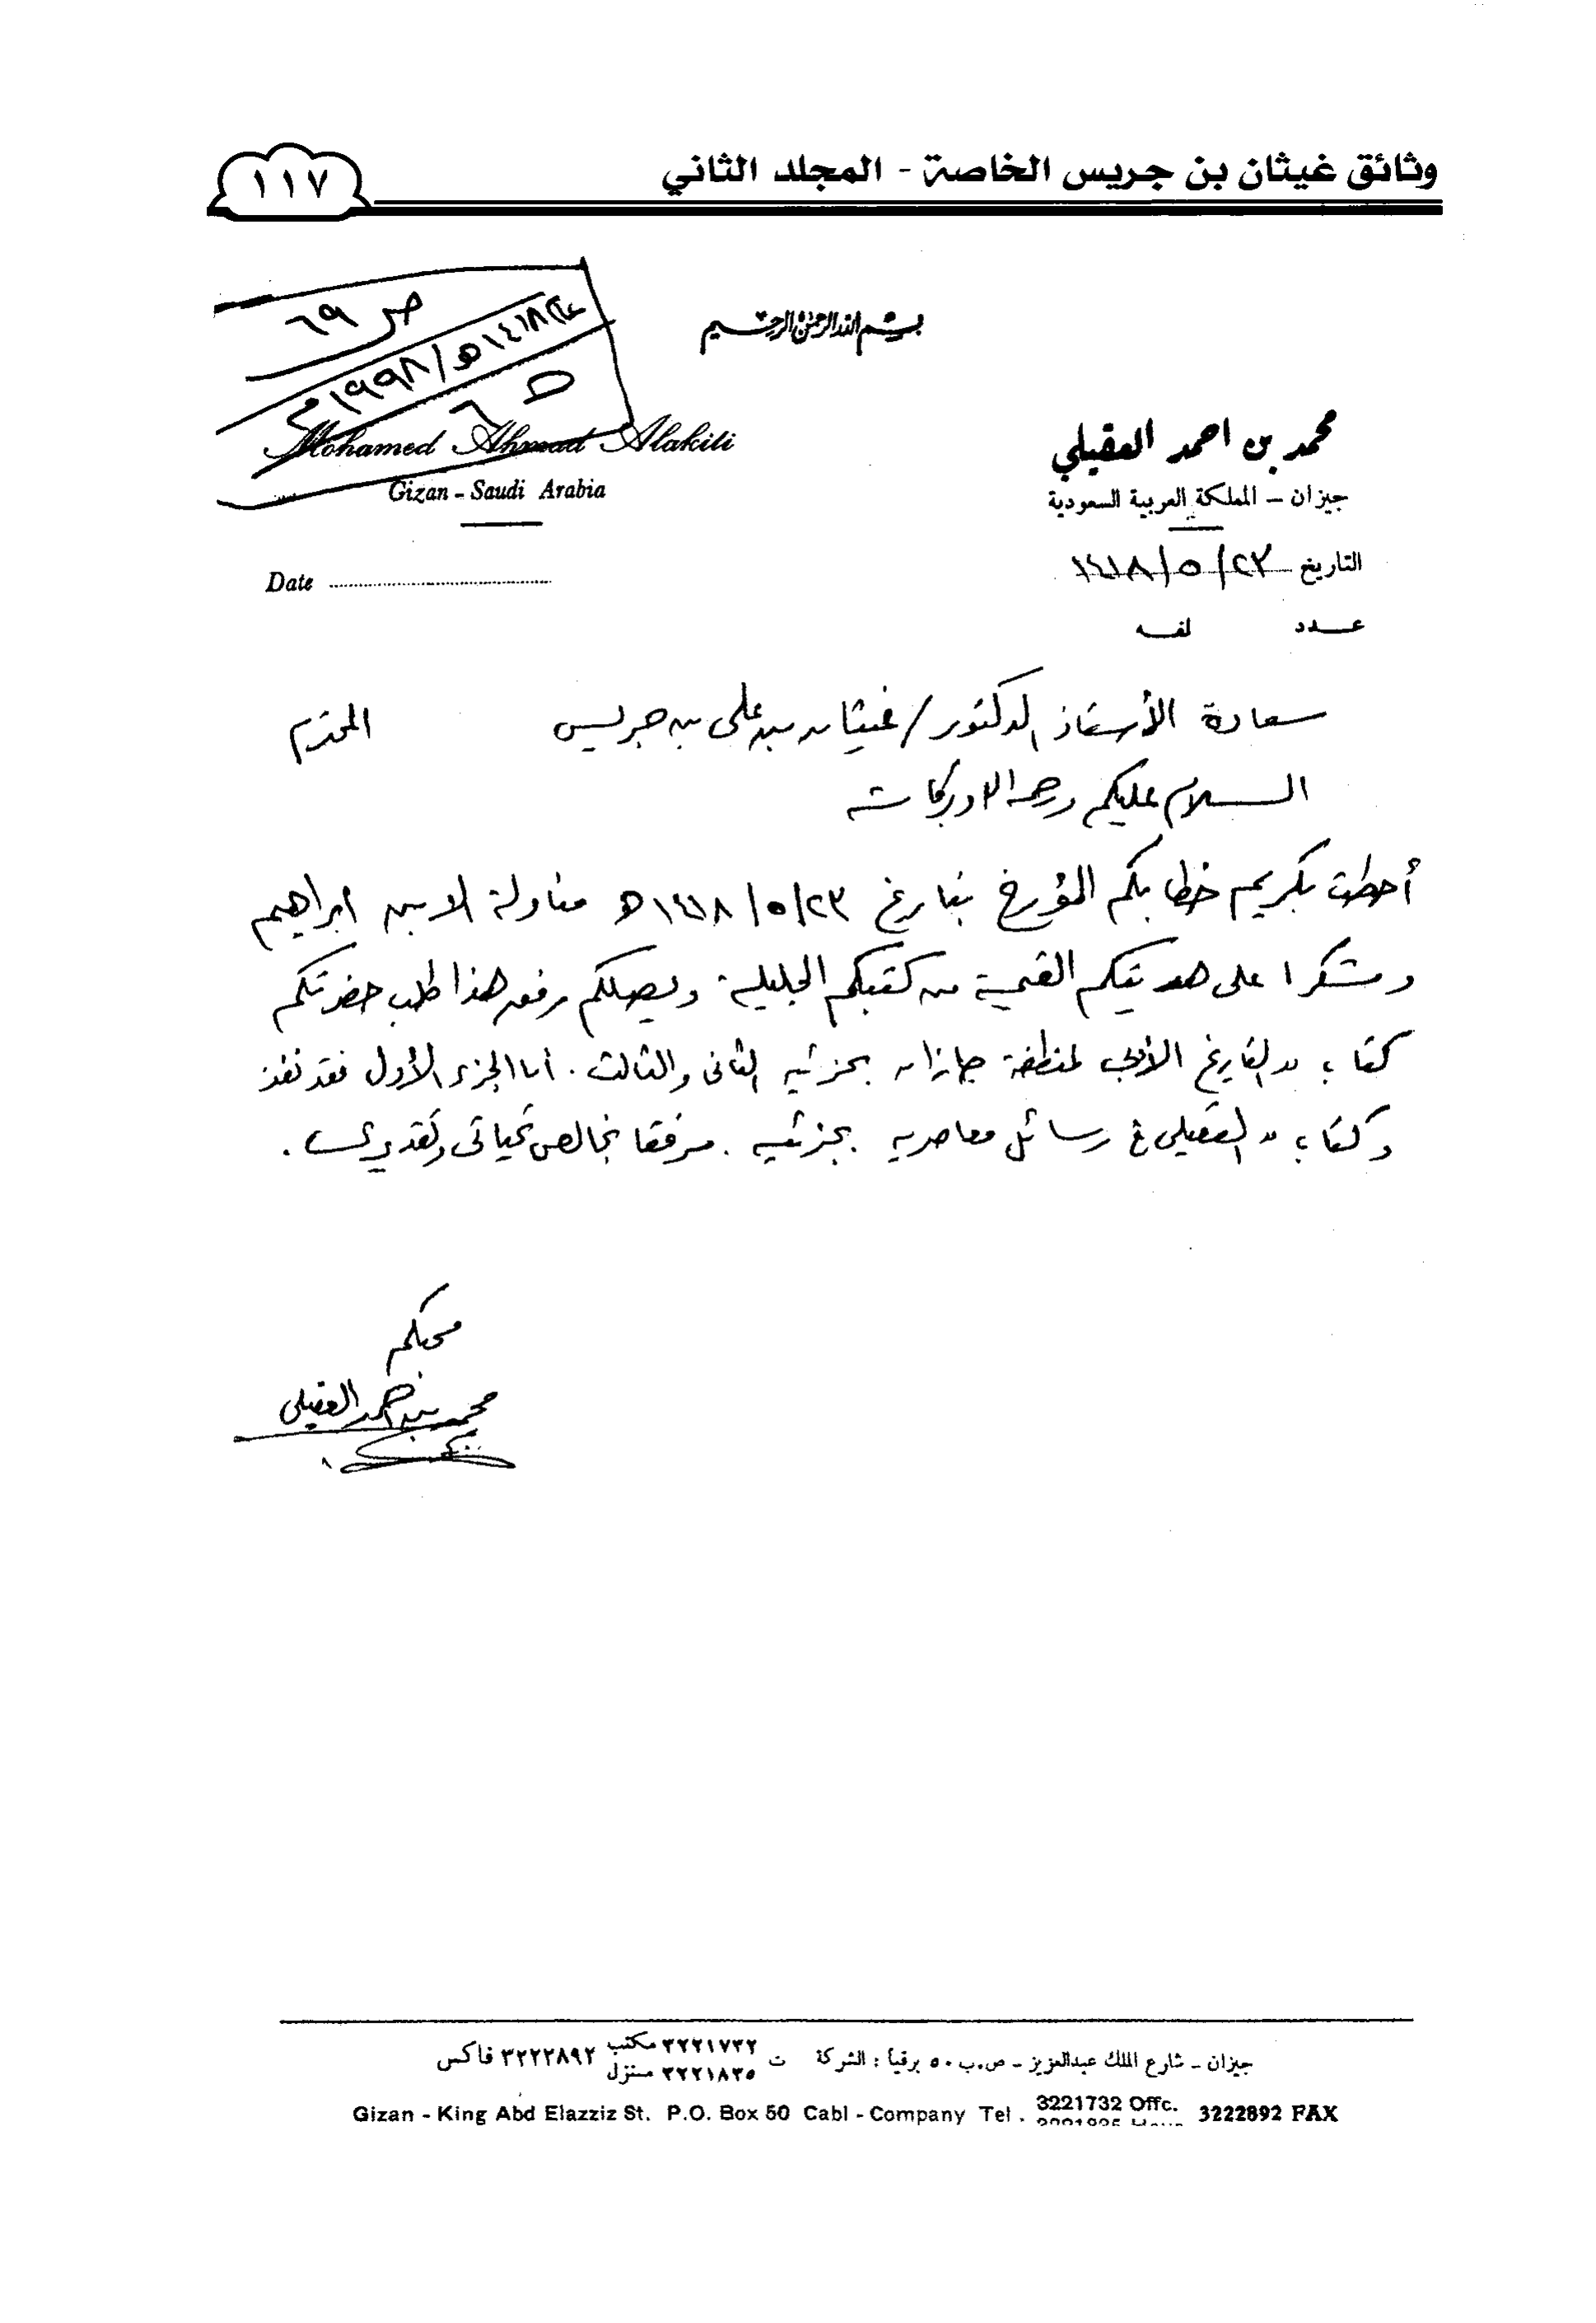 وثائق غيثان بن جريس الخاصة - المجلد الثاني
١١٧
ص ٦٩
١٤١٨هـ/١٩٩٨م
بسم الله الرحمن الرحيم
محمد بن احمد العقيلي
جيزان - المملكة العربية السعودية
Mohamed Ahmad Alakili
Gizan - Saudi Arabia
التاريخ ٢٣/٥/١٤١٨
Date
عدد لفه
سعادة الأستاذ الدكتور / غيثان بن علي بن جريس المحترم
السلام عليكم ورحمة الله وبركاته
أحطت بكريم خطابكم المؤرخ بتاريخ ٢٣/٥/١٤١٨هـ مناولة الابن ابراهيم
وشكرا على هديتكم القيمة من كتبكم الجليلة. ويصلكم رفق هذا طلب حضرتكم
كتاب " التاريخ الأدبي لمنطقة جازان بجزئيه الثاني والثالث. أما الجزء الأول فقد نفذ
وكتاب " العقيلي في رسائل معاصريه بجزئيه. مرفقا بخالص تحياتي وتقديري.
محبكم
محمد بن احمد العقيلي
جيزان - شارع الملك عبدالعزيز - ص.ب ٥٠ برقياً : الشركة ت ٣٢٢١٧٣٢ مكتب ٣٢٢٢٨٩٢ فاكس
٣٢٢١٨٣٥ منزل
Gizan - King Abd Elazziz St. P.O. Box 50 Cabl - Company Tel . 3221732 Offc. 3222892 FAX